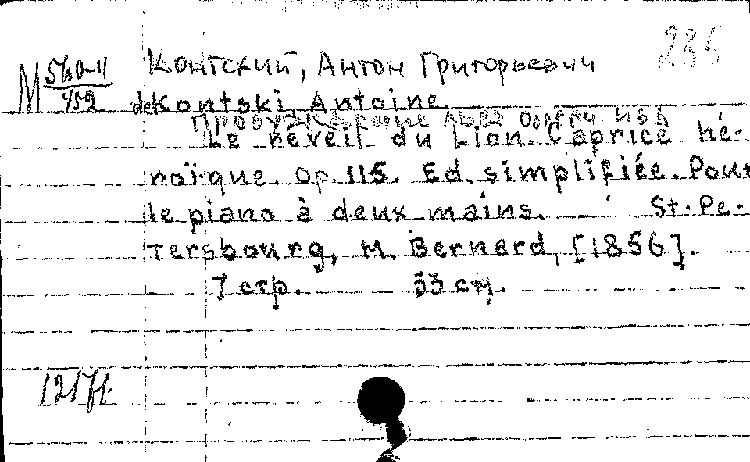 Контский, Антон Григорьевич
M 580-11
de Kontski, Antoine
Пробуждение льва
Le réveil du Lion. Caprice hé-
roïque. Op. 115. Ed. simplifiée. Pour
le piano à deux mains. St.-Pe-
tersbourg, M. Bernard, [1856].
7 стр. 33 см.